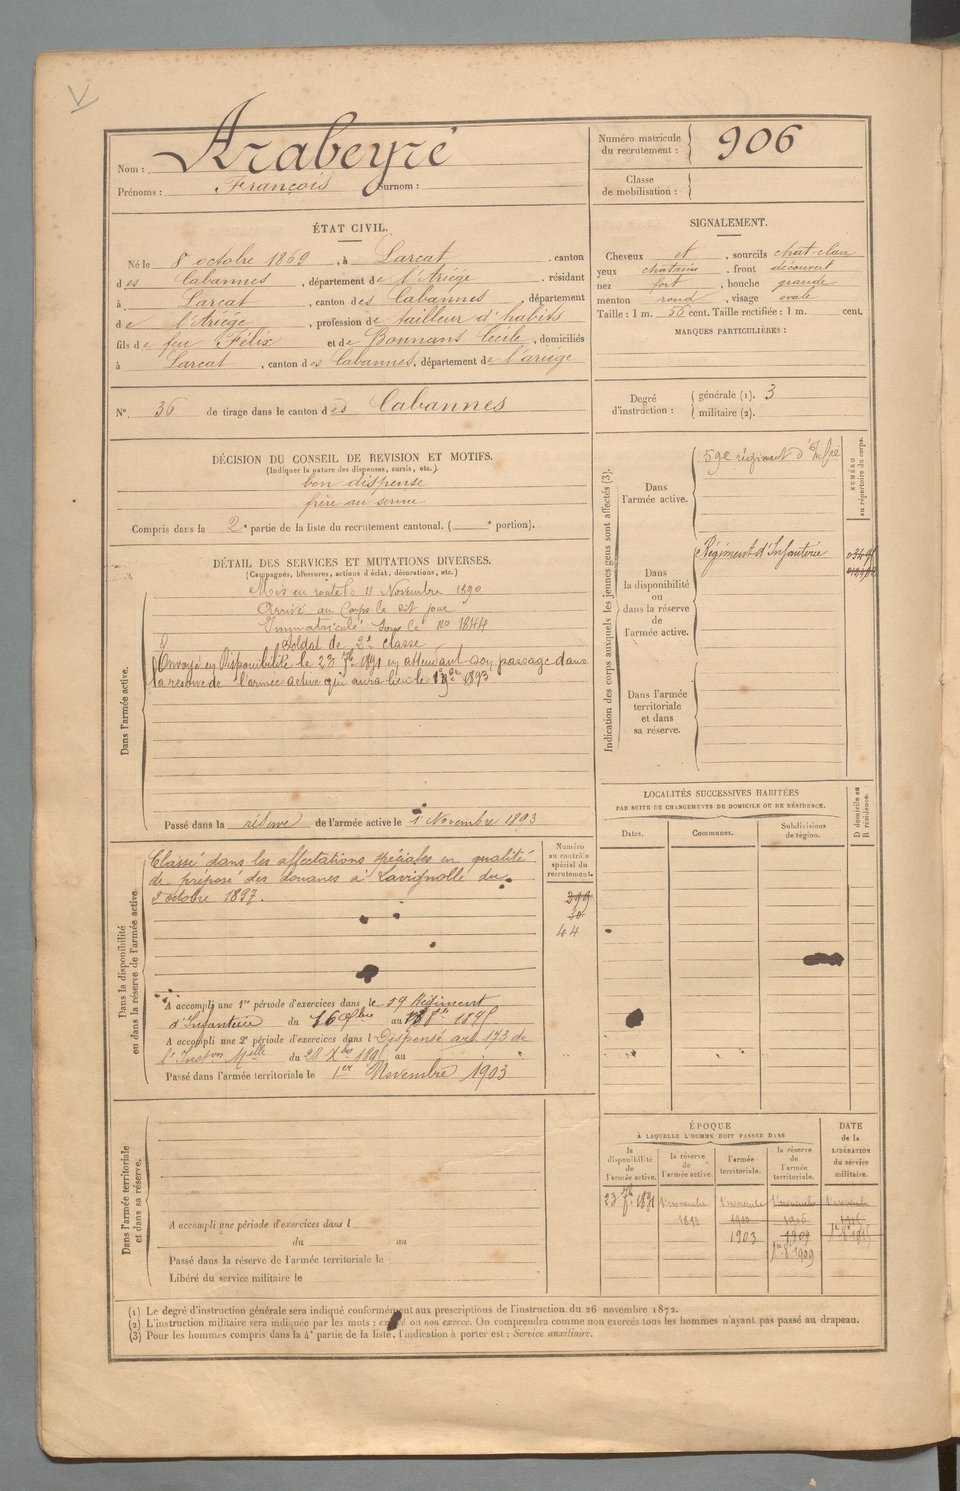 V
Arabeyre
Nom :
Prénoms : François Surnom :
Numéro matricule du recrutement : 906
Classe de mobilisation :
ÉTAT CIVIL.
Né le 8 octobre 1869, à Larcat, canton
des Cabannes, département de l'Ariége, résidant
à Larcat, canton des Cabannes, département
de l'Ariége, profession de tailleur d'habits
fils de feu Félix et de Bonnans Cécile, domiciliés
à Larcat, canton des Cabannes, département de l'ariége
N° 36 de tirage dans le canton des Cabannes
SIGNALEMENT.
Cheveux et, sourcils chat-clair
yeux chatains, front découvert
nez fort, bouche grande
menton rond, visage ovale
Taille : 1 m. 56 cent. Taille rectifiée : 1 m. cent.
MARQUES PARTICULIÈRES :
Degré d'instruction : générale (1). 3
militaire (2).
DÉCISION DU CONSEIL DE REVISION ET MOTIFS.
(Indiquer la nature des dispenses, sursis, etc.)
bon dispense
frère au service
Compris dans la 2e partie de la liste du recrutement cantonal. ( e portion).
DÉTAIL DES SERVICES ET MUTATIONS DIVERSES.
(Campagnes, blessures, actions d'éclat, décorations, etc.)
Dans l'armée active.
Mis en route le 11 Novembre 1890
Arrivé au Corps le dit jour
Immatriculé sous le no 1844
Soldat de 2e classe
Envoyé en Disponibilité le 23 7bre 1891 en attendant son passage dans
la réserve de l'armée active qui aura lieu le 1er 9bre 1893
Passé dans la réserve de l'armée active le 1 Novembre 1893
Indication des corps auxquels les jeunes gens sont affectés (3).
Dans l'armée active.
59e régiment d'Infie
NUMÉRO au répertoire du corps.
Dans la disponibilité ou dans la réserve de l'armée active.
Régiment d'Infanterie
Dans l'armée territoriale et dans sa réserve.
LOCALITÉS SUCCESSIVES HABITÉES
PAR SUITE DE CHANGEMENTS DE DOMICILE OU DE RÉSIDENCE.
Dates.
Communes.
Subdivisions de région.
D domicile ou R résidence.
Dans la disponibilité ou dans la réserve de l'armée active.
Classé dans les affectations spéciales en qualité
de préposé des douanes à Lavignolle du
octobre 1897.
Numéro au contrôle spécial du recrutement.
399
30
44
A accompli une 1re période d'exercices dans le 59 Régiment
d'Infanterie du au 1895
A accompli une 2e période d'exercices dans l Dispensé art 173 de
l'Inston Melle du 28 Xbre 1895 au
Passé dans l'armée territoriale le 1er Novembre 1903
Dans l'armée territoriale et dans sa réserve.
A accompli une période d'exercices dans l
du au
Passé dans la réserve de l'armée territoriale le
Libéré du service militaire le
ÉPOQUE
À LAQUELLE L'HOMME DOIT PASSER DANS
la disponibilité de l'armée active.
la réserve de l'armée active.
l'armée territoriale.
la réserve de l'armée territoriale.
DATE de la LIBÉRATION du service militaire.
23 7bre 1891
1er novembre 1893
1er novembre 1900
1903
1er novembre 1906
1909
1er 8bre 1909
1er novembre
(1) Le degré d'instruction générale sera indiqué conformément aux prescriptions de l'instruction du 26 novembre 1872.
(2) L'instruction militaire sera indiquée par les mots : exercé ou non exercé. On comprendra comme non exercés tous les hommes n'ayant pas passé au drapeau.
(3) Pour les hommes compris dans la 4e partie de la liste, l'indication à porter est : Service auxiliaire.